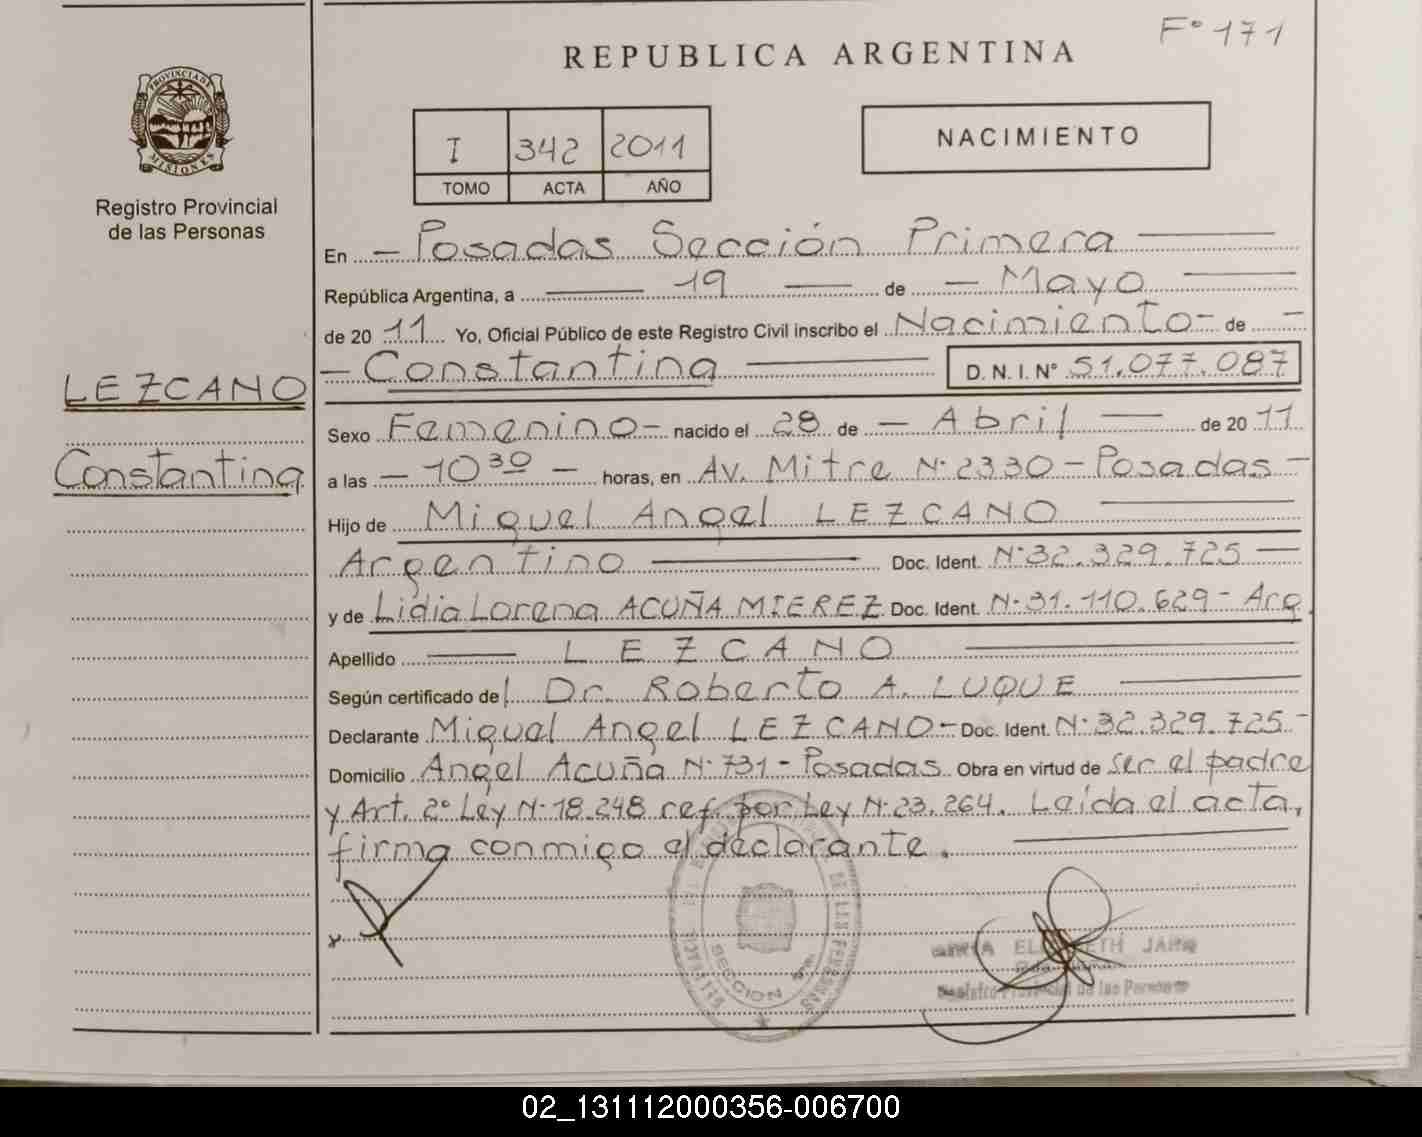 F° 171
REPUBLICA ARGENTINA
PROVINCIA DE
MISIONES
Registro Provincial
de las Personas
I 342 2011
TOMO ACTA AÑO
NACIMIENTO
En - Posadas Sección Primera
República Argentina, a 19 de - Mayo
de 2011 Yo, Oficial Público de este Registro Civil inscribo el Nacimiento - de -
- Constantina D.N.I. N° 51.077.087
LEZCANO
Constantina
Sexo Femenino - nacido el 28 de - Abril de 2011
a las - 10 30 - horas, en Av. Mitre N° 2330 - Posadas -
Hijo de Miguel Angel LEZCANO
Argentino Doc. Ident. N° 32.329.725
y de Lidia Lorena ACUÑA MIEREZ Doc. Ident. N° 31.110.629 - Arg.
Apellido LEZCANO
Según certificado del Dr. Roberto A. LUQUE
Declarante Miguel Angel LEZCANO - Doc. Ident. N° 32.329.725 -
Domicilio Angel Acuña N° 731 - Posadas Obra en virtud de ser el padre
y Art. 2° Ley N° 18.248 ref. por Ley N° 23.264. Leída el acta,
firma conmigo el declarante.
SECCION
DE LAS PERSONAS
JARA
Registro Provincial de las Personas
02_131112000356-006700